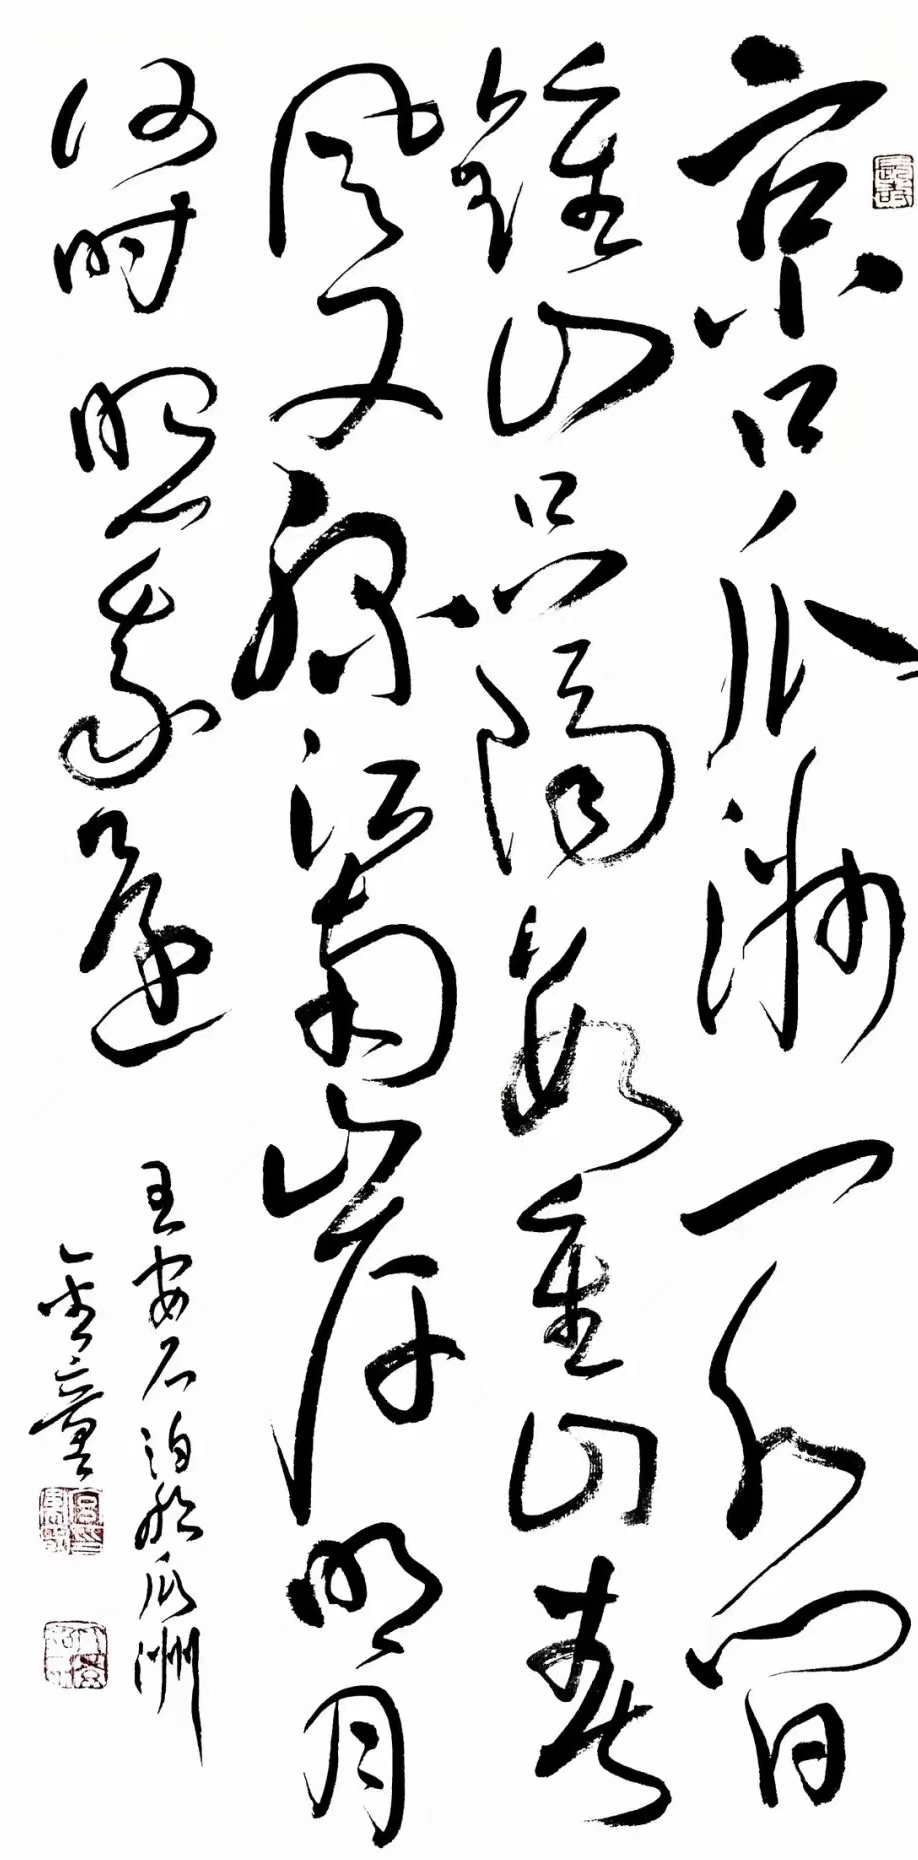 京口瓜洲一水間
鍾山只隔數重山春
風又綠江南岸明月
何时照我還
王安石泊船瓜洲